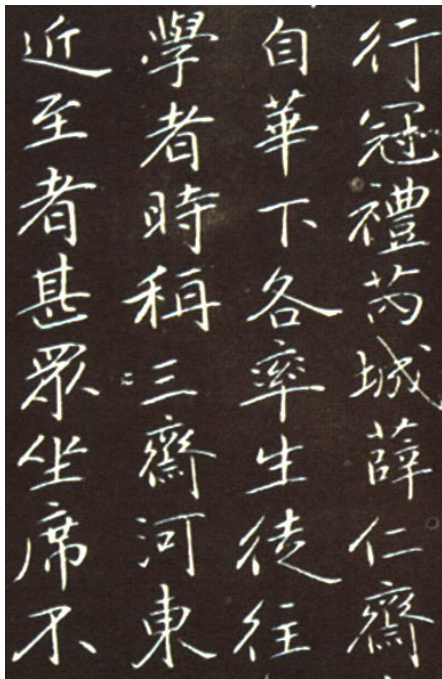 行冠禮芮城薛仁齋
自華下各率生徒往
學者時稱三齋河東
近至者甚眾坐席不